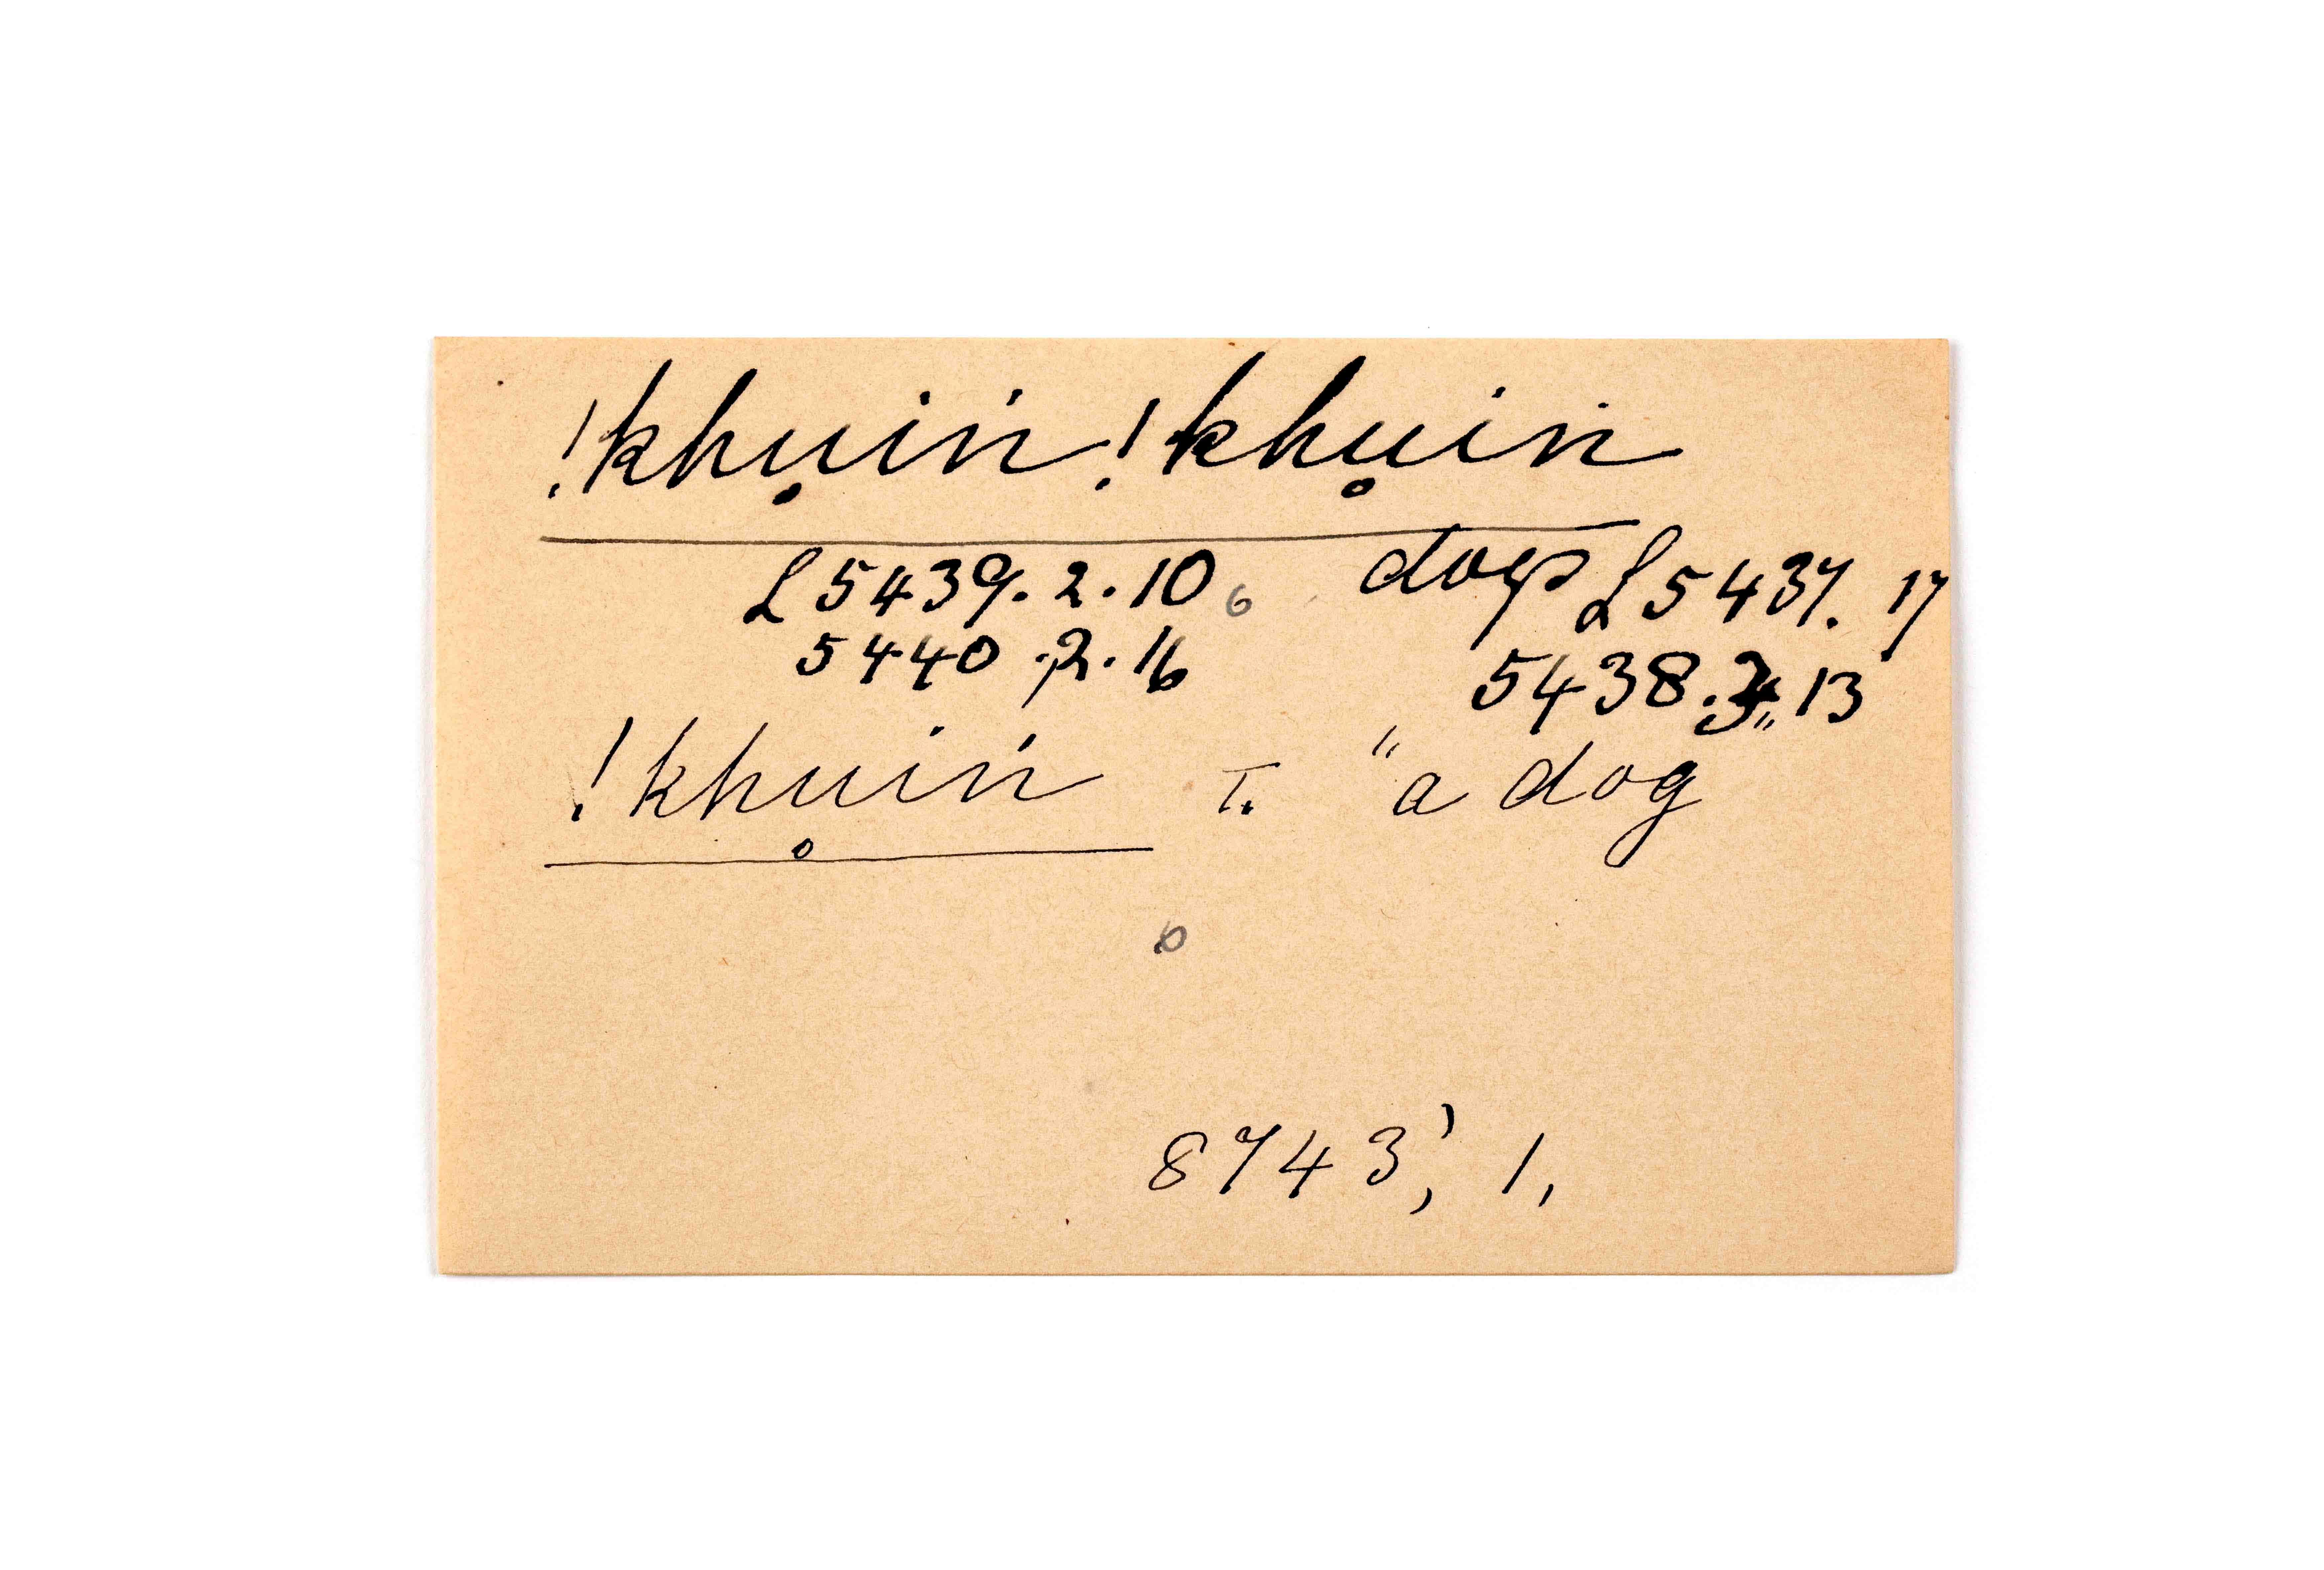 !khu̥iṅ !khu̥iṅ
L 5439. 2. 10 6 dogs L 5437. 17
5440. 2. 16 5438. 13
!khu̥iṅ T. "a dog
6
8743', 1,